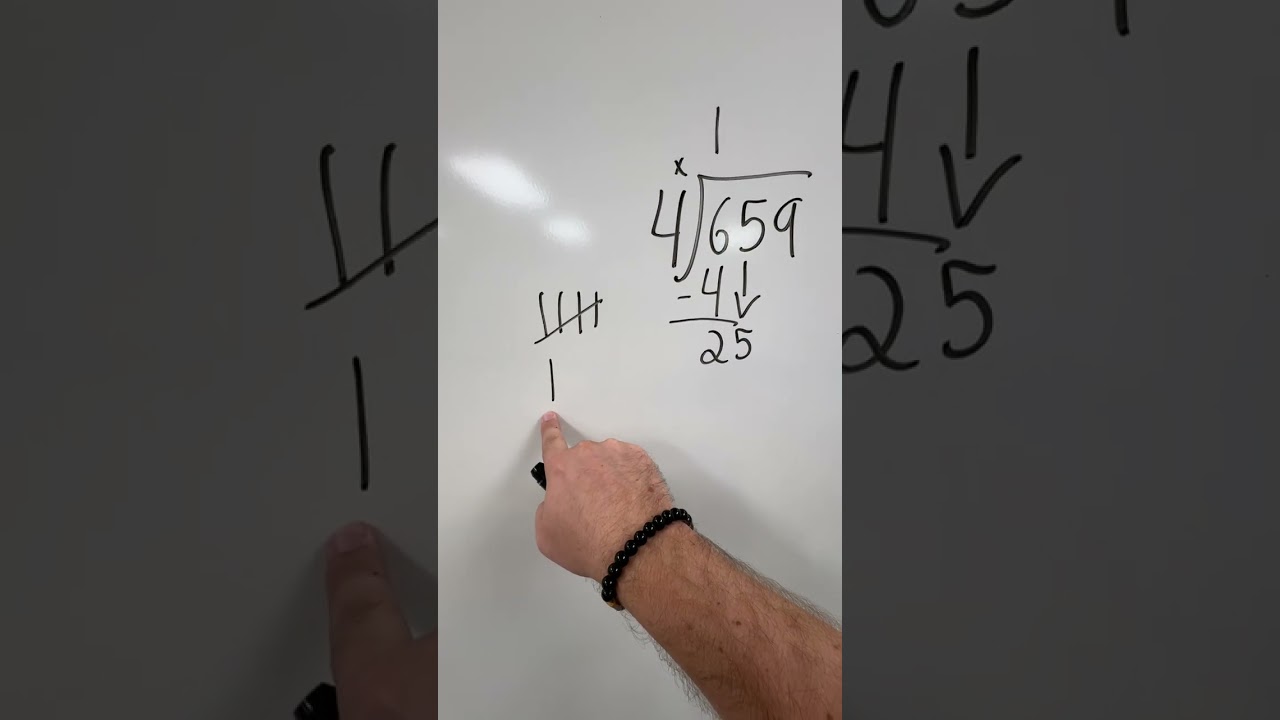 1
x
4)659
-4↓
25
卌
1